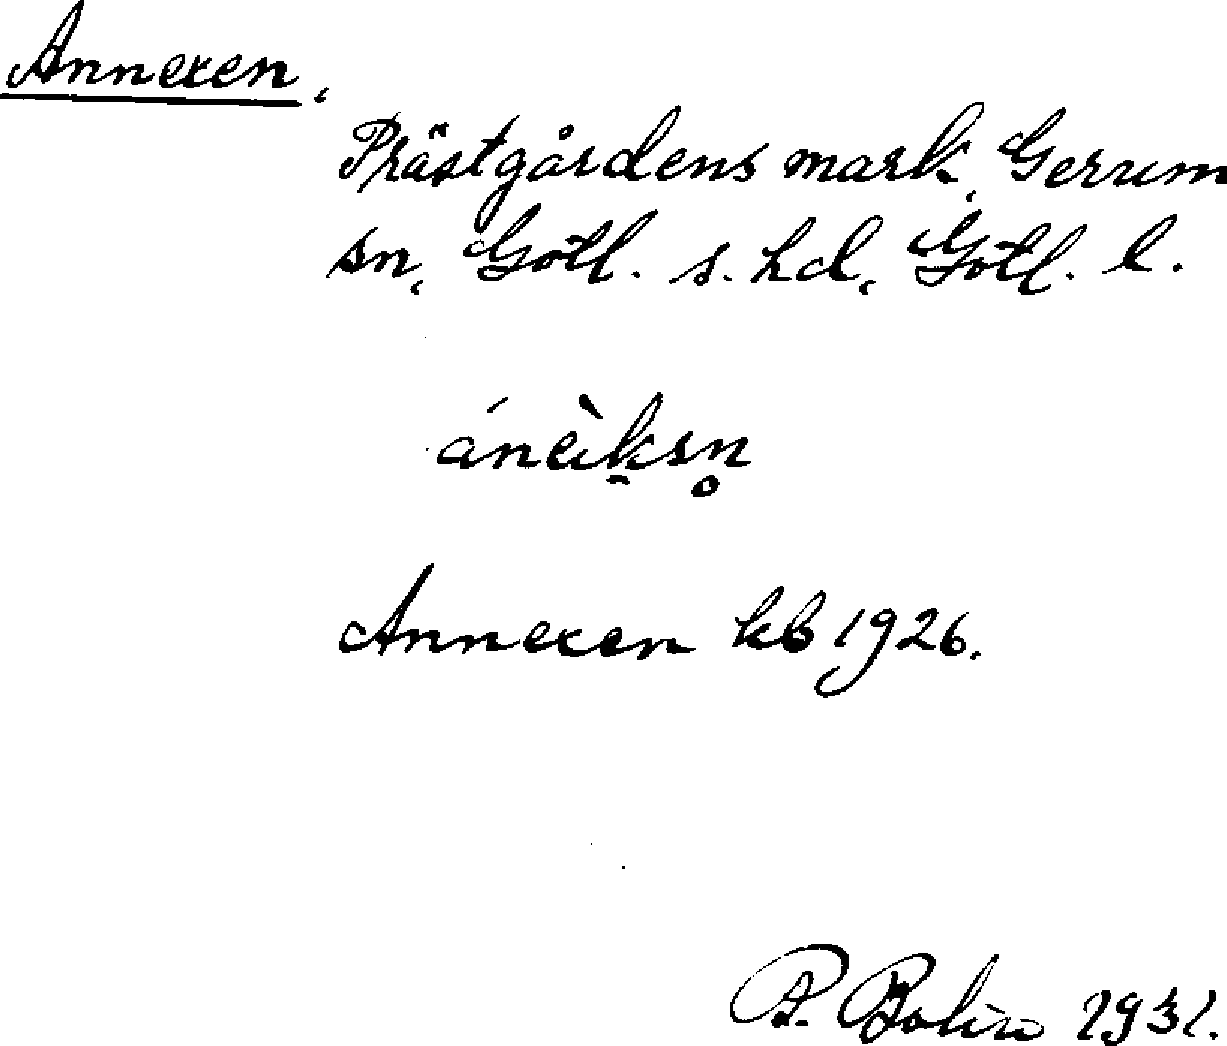 Annexen,
Prästgårdens mark, Gerum
sn, Gotl. s. hd, Gotl. l.
Annexen kb 1926.
Bolin 1931.